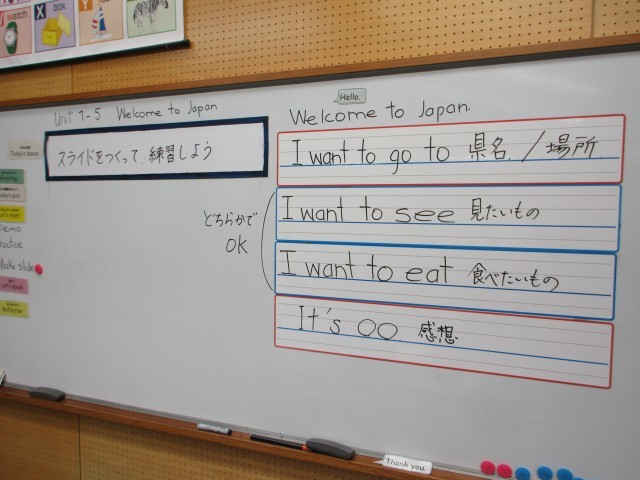 watch
X box
Y
Hello.
Unit 7-5 Welcome to Japan
Welcome to Japan.
スライドをつくって、練習しよう
I want to go to 県名/場所
どちらかで
OK
I want to see 見たいもの
I want to eat 食べたいもの
It's ○○ 感想
Today's lesson
Greeting
Today's goal
Let's start
Demo
Practice
Make slide
Let's speak
Reflection
Thank you.